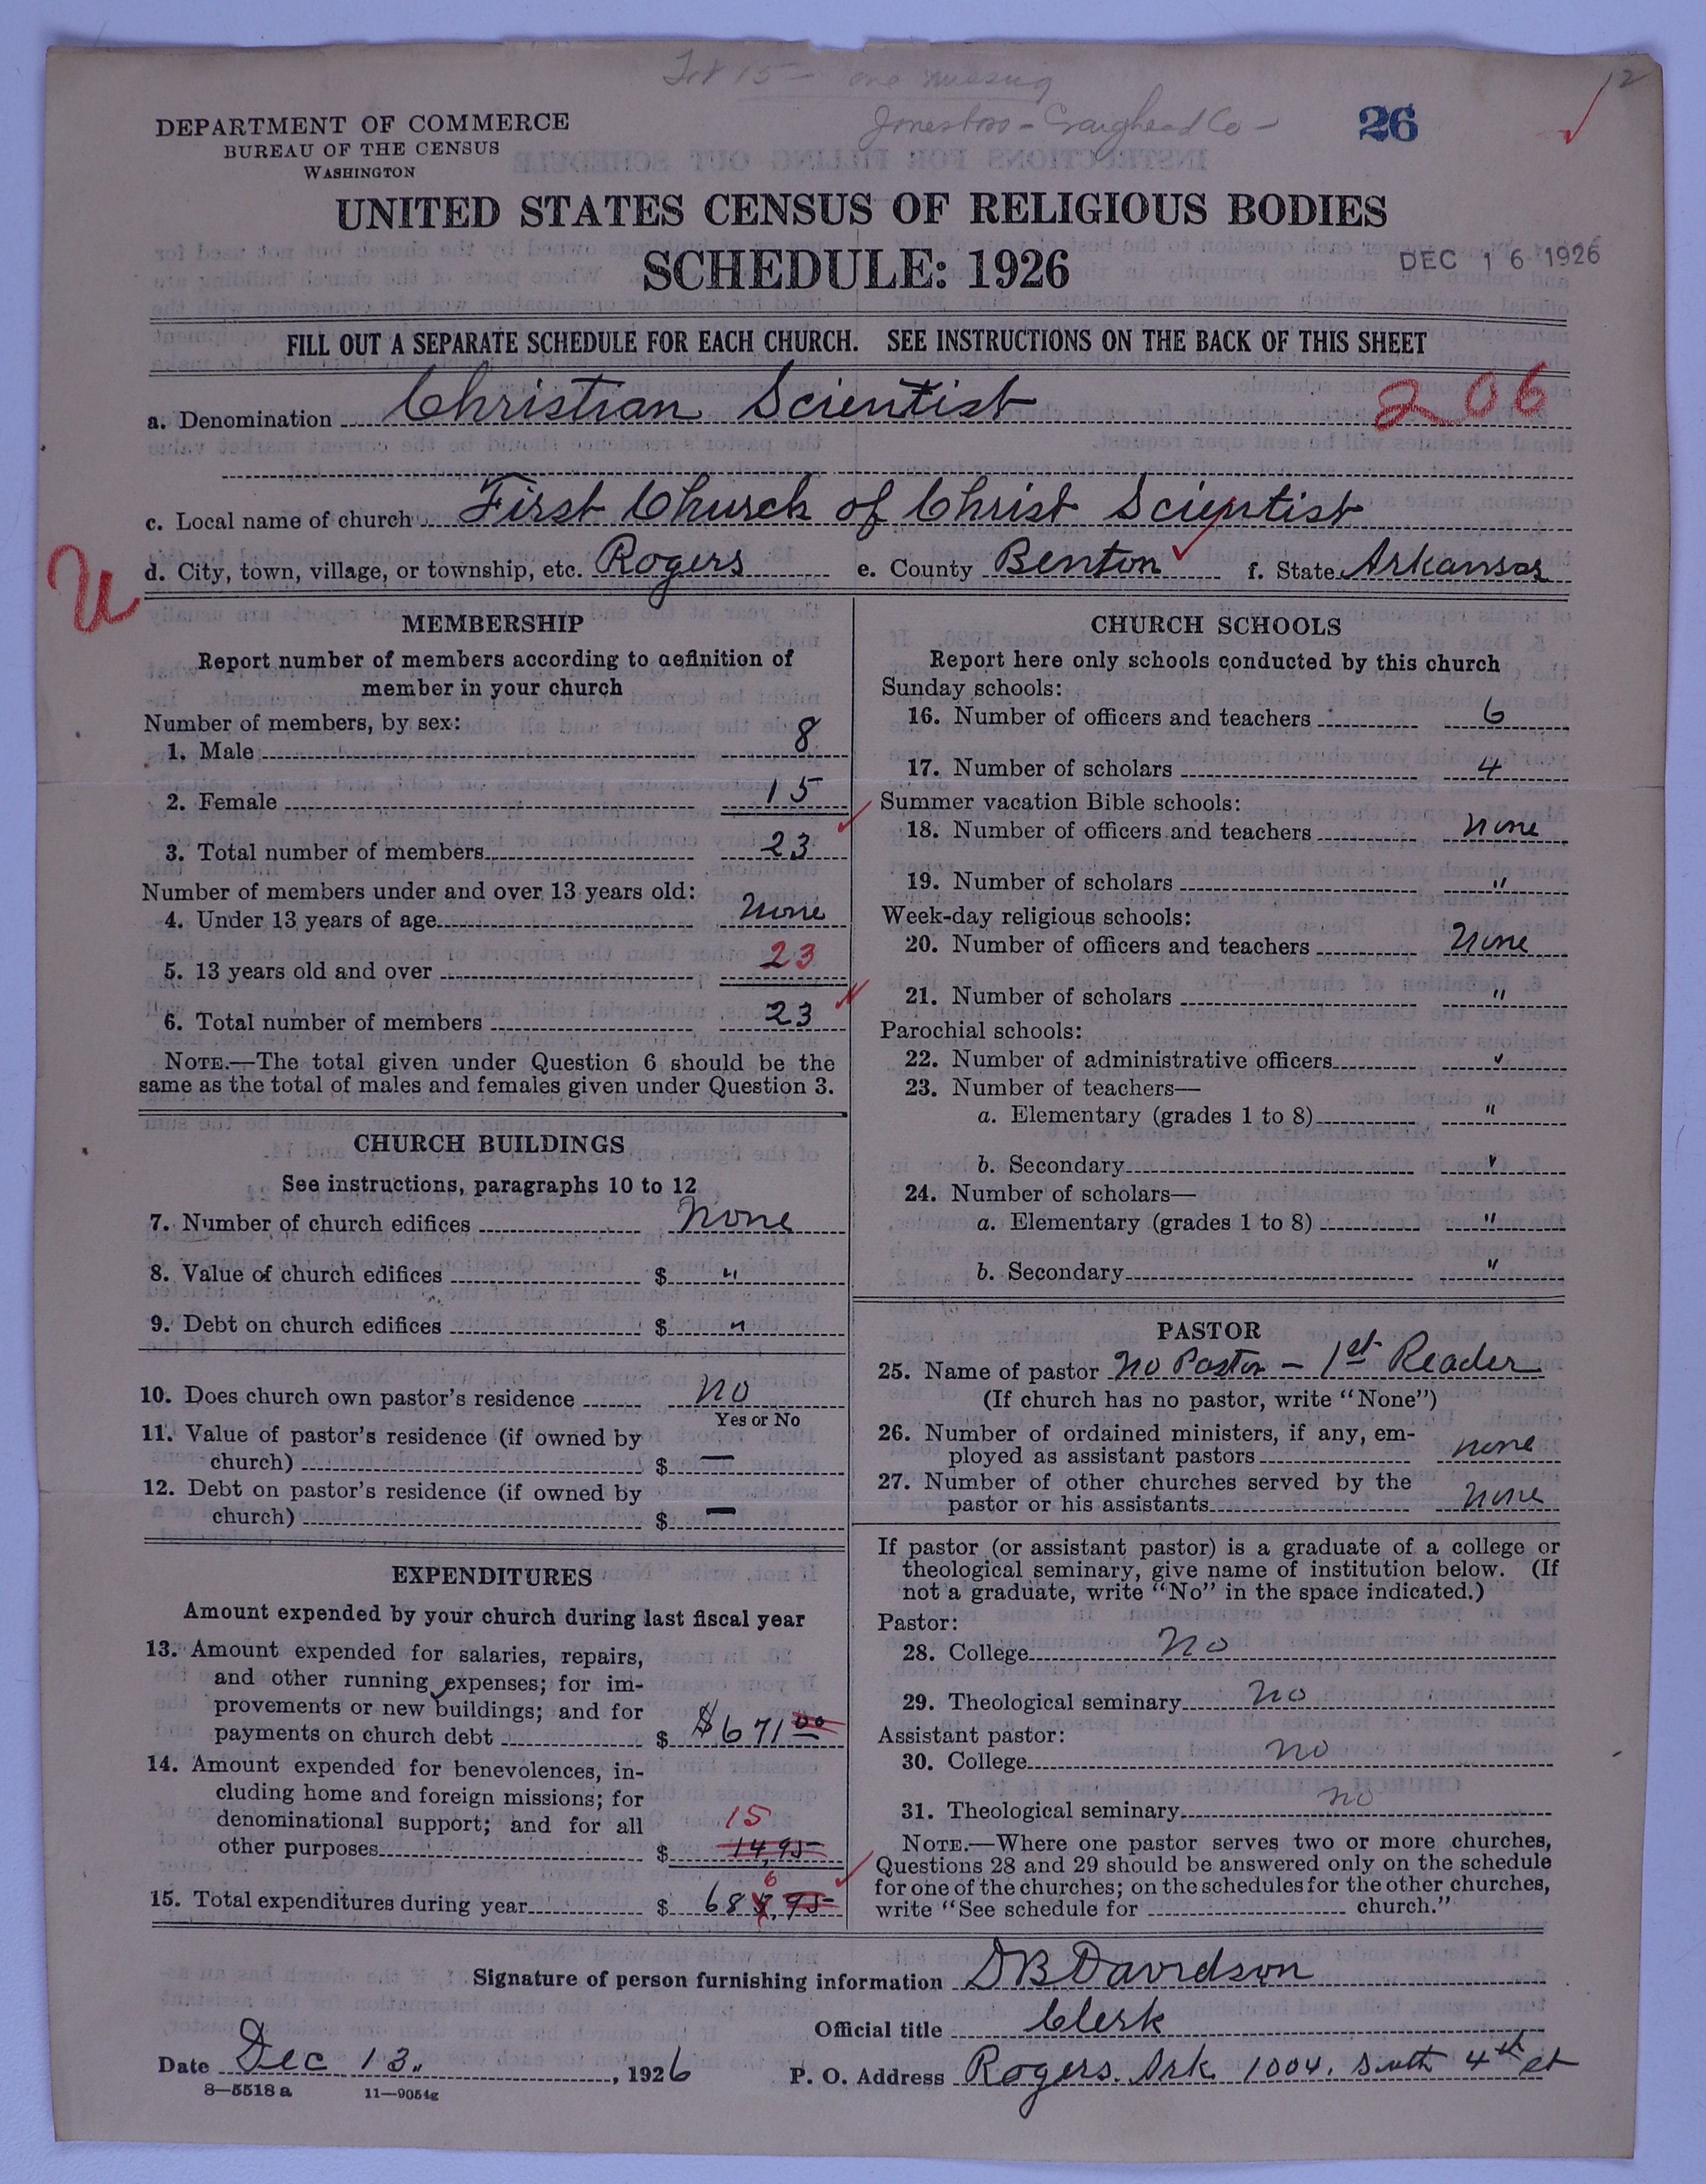 Tot 15 - one missing
12
Jonesboro - Craighead Co -
26
DEPARTMENT OF COMMERCE
BUREAU OF THE CENSUS
WASHINGTON
UNITED STATES CENSUS OF RELIGIOUS BODIES
SCHEDULE: 1926
DEC 16 1926
FILL OUT A SEPARATE SCHEDULE FOR EACH CHURCH. SEE INSTRUCTIONS ON THE BACK OF THIS SHEET
a. Denomination Christian Scientist 206
c. Local name of church First Church of Christ Scientist
U
d. City, town, village, or township, etc. Rogers e. County Benton f. State Arkansas
MEMBERSHIP
Report number of members according to definition of
member in your church
Number of members, by sex:
1. Male 8
2. Female 15
3. Total number of members 23
Number of members under and over 13 years old:
4. Under 13 years of age none
5. 13 years old and over 23
6. Total number of members 23
NOTE.—The total given under Question 6 should be the
same as the total of males and females given under Question 3.
CHURCH BUILDINGS
See instructions, paragraphs 10 to 12
7. Number of church edifices none
8. Value of church edifices $ "
9. Debt on church edifices $ "
10. Does church own pastor's residence no
Yes or No
11. Value of pastor's residence (if owned by
church) $ —
12. Debt on pastor's residence (if owned by
church) $ —
EXPENDITURES
Amount expended by your church during last fiscal year
13. Amount expended for salaries, repairs,
and other running expenses; for im-
provements or new buildings; and for
payments on church debt $ $671 00
14. Amount expended for benevolences, in-
cluding home and foreign missions; for
denominational support; and for all 15
other purposes $ 14,95
6
15. Total expenditures during year $ 685.95
CHURCH SCHOOLS
Report here only schools conducted by this church
Sunday schools:
16. Number of officers and teachers 6
17. Number of scholars 4
Summer vacation Bible schools:
18. Number of officers and teachers none
19. Number of scholars "
Week-day religious schools:
20. Number of officers and teachers none
21. Number of scholars "
Parochial schools:
22. Number of administrative officers "
23. Number of teachers—
a. Elementary (grades 1 to 8) "
b. Secondary "
24. Number of scholars—
a. Elementary (grades 1 to 8) "
b. Secondary "
PASTOR
25. Name of pastor no Pastor - 1st Reader
(If church has no pastor, write "None")
26. Number of ordained ministers, if any, em-
ployed as assistant pastors none
27. Number of other churches served by the
pastor or his assistants none
If pastor (or assistant pastor) is a graduate of a college or
theological seminary, give name of institution below. (If
not a graduate, write "No" in the space indicated.)
Pastor:
28. College no
29. Theological seminary no
Assistant pastor:
30. College no
31. Theological seminary no
NOTE.—Where one pastor serves two or more churches,
Questions 28 and 29 should be answered only on the schedule
for one of the churches; on the schedules for the other churches,
write "See schedule for church."
Signature of person furnishing information D B Davidson
Official title Clerk
Date Dec 13, 1926 P. O. Address Rogers. Ark. 1004. South 4th st
8—5518 a 11—9054g